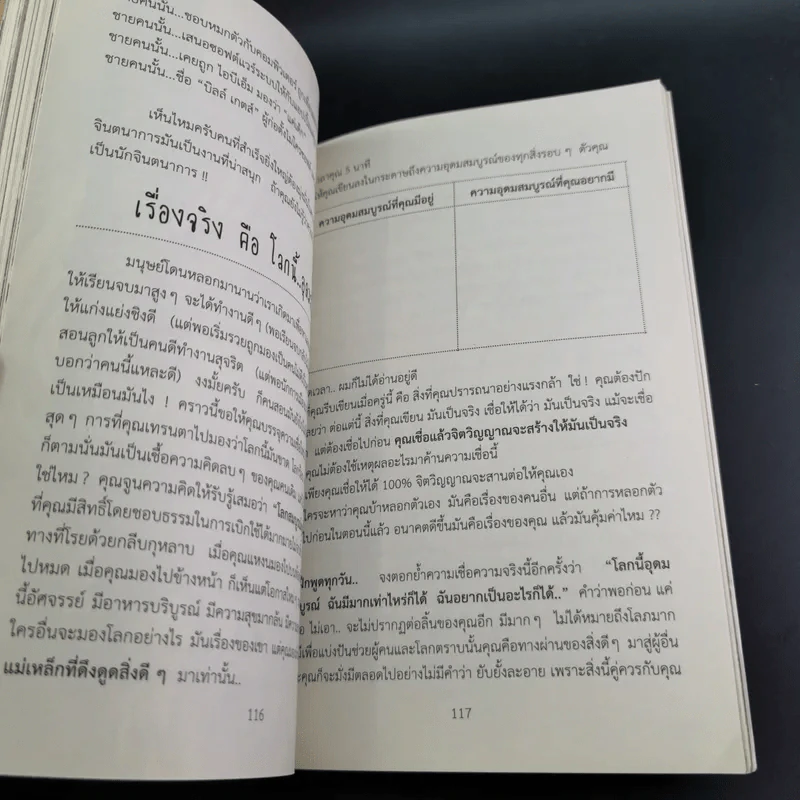 ชายคนนั้น...ชอบหมกตัวกับคอมพิวเตอร์
ชายคนนั้น...เสนอซอฟต์แวร์ระบบให้กับ
ชายคนนั้น...เคยถูก ไอบีเอ็ม มองว่า
ชายคนนั้น...ชื่อ "บิลล์ เกตส์" ผู้ก่อตั้งไมโครซอฟ
เห็นไหมครับคนที่สำเร็จยิ่งใหญ่ต้อง
จินตนาการมันเป็นงานที่น่าสนุก ถ้าคุณ
เป็นนักจินตนาการ !!
เรื่องจริง คือ โลกนี้..
มนุษย์โดนหลอกมานานว่าเราเกิดมาเพื่อ
ให้เรียนจบมาสูงๆ จะได้ทำงานดีๆ (พอเรียนจบ
ให้แก่งแย่งชิงดี (แต่พอเริ่มรวยถูกมองเป็นคน
สอนลูกให้เป็นคนดีทำงานสุจริต (แต่พอนักการเมือง
บอกว่าคนนี้แหละดี) งงมั้ยครับ ก็คนสอนมัน
เป็นเหมือนมันไง ! คราวนี้ขอให้คุณบรรจุความเชื่อ
สุดๆ การที่คุณเทรนตาไปมองว่าโลกนี้มันขาด
ก็ตามนั่นมันเป็นเชื้อความคิดลบๆ ของคุณคนเดิม
ใช่ไหม ? คุณจูนความคิดให้รับรู้เสมอว่า "โลก
ที่คุณมีสิทธิ์โดยชอบธรรมในการเบิกใช้ได้มากมาย
ทางที่โรยด้วยกลีบกุหลาบ เมื่อคุณแหงนมอง
ไปหมด เมื่อคุณมองไปข้างหน้า ก็เห็นแต่โอกาสใหม่ๆ
นี้อัศจรรย์ มีอาหารบริบูรณ์ มีความสุขมากล้น
ใครอื่นจะมองโลกอย่างไร มันเรื่องของเขา แต่คุณ
แม่เหล็กที่ดึงดูดสิ่งดีๆ มาเท่านั้น..
116
เวลาคุณ 5 นาที
ให้คุณเขียนลงในกระดาษถึงความอุดมสมบูรณ์ของทุกสิ่งรอบๆ ตัวคุณ
ความอุดมสมบูรณ์ที่คุณมีอยู่
ความอุดมสมบูรณ์ที่คุณอยากมี
เวลา.. ผมก็ไม่ได้อ่านอยู่ดี
ที่คุณรีบเขียนเมื่อครู่นี้ คือ สิ่งที่คุณปรารถนาอย่างแรงกล้า ใช่ ! คุณต้องปัก
เลยว่า ต่อแต่นี้ สิ่งที่คุณเขียน มันเป็นจริง เชื่อให้ได้ว่า มันเป็นจริง แม้จะเชื่อ
แต่ต้องเชื่อไปก่อน คุณเชื่อแล้วจิตวิญญาณจะสร้างให้มันเป็นจริง
คุณไม่ต้องใช้เหตุผลอะไรมาค้านความเชื่อนี้
เพียงคุณเชื่อให้ได้ 100% จิตวิญญาณจะสานต่อให้คุณเอง
ใครจะหาว่าคุณบ้าหลอกตัวเอง มันคือเรื่องของคนอื่น แต่ถ้าการหลอกตัว
ไปก่อนในตอนนี้แล้ว อนาคตดีขึ้นมันคือเรื่องของคุณ แล้วมันคุ้มค่าไหม ??
พูดทุกวัน.. จงตอกย้ำความเชื่อความจริงนี้อีกครั้งว่า "โลกนี้อุดม
บูรณ์ ฉันมีมากเท่าไหร่ก็ได้ ฉันอยากเป็นอะไรก็ได้.." คำว่าพอก่อน แค่
ไม่เอา.. จะไม่ปรากฏต่อลิ้นของคุณอีก มีมากๆ ไม่ได้หมายถึงโลภมาก
เพื่อแบ่งปันช่วยผู้คนและโลกตราบนั้นคุณคือทางผ่านของสิ่งดีๆ มาสู่ผู้อื่น
คุณก็จะมั่งมีตลอดไปอย่างไม่มีคำว่า ยับยั้งละอาย เพราะสิ่งนี้คู่ควรกับคุณ
117